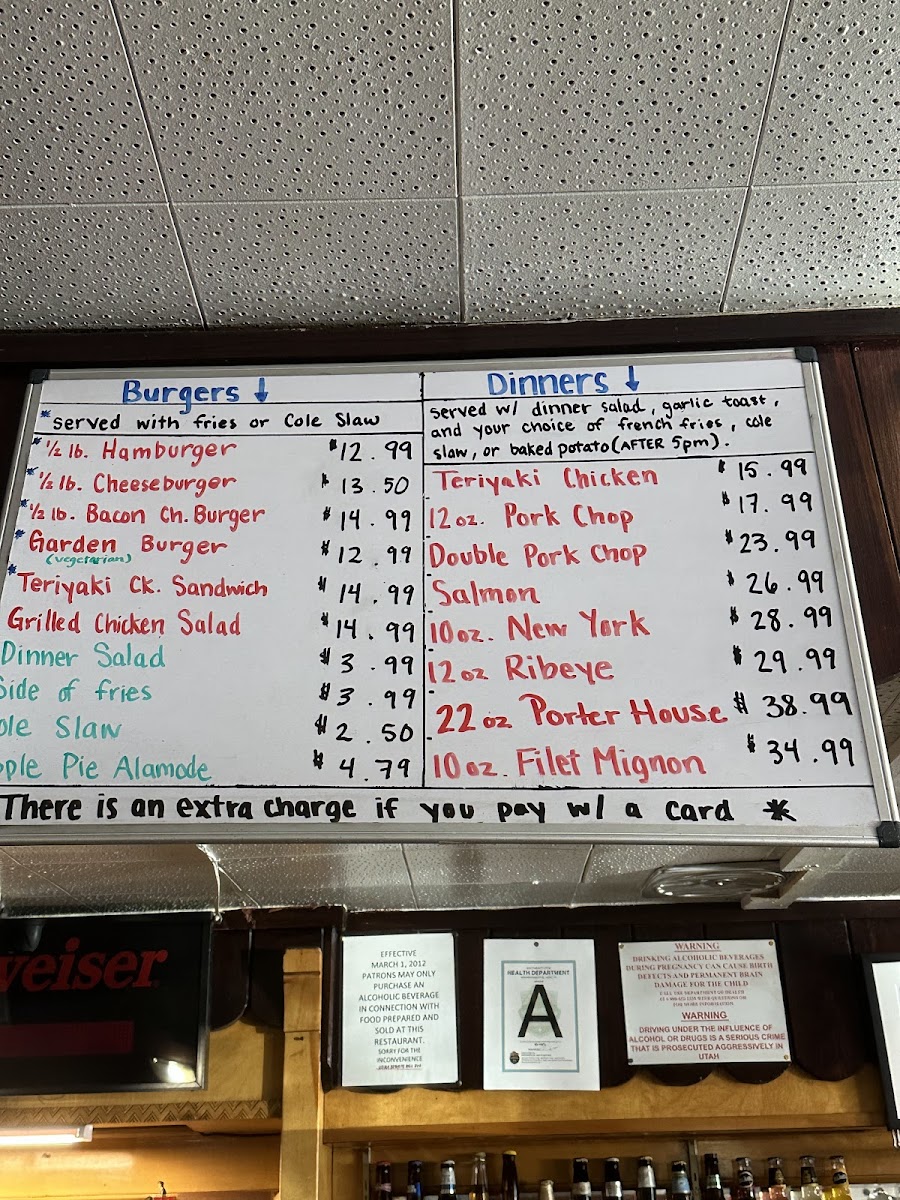 Burgers ↓
* Served with fries or Cole Slaw
* 1/2 lb. Hamburger $12.99
* 1/2 lb. Cheeseburger $13.50
* 1/2 lb. Bacon Ch. Burger $14.99
* Garden Burger $12.99
(vegetarian)
* Teriyaki Ck. Sandwich $14.99
Grilled Chicken Salad $14.99
Dinner Salad $3.99
Side of fries $3.99
ole Slaw $2.50
ple Pie Alamode $4.79
Dinners ↓
Served w/ dinner salad, garlic toast,
and your choice of french fries, cole
slaw, or baked potato (AFTER 5pm).
Teriyaki Chicken $15.99
12 oz. Pork Chop $17.99
Double Pork Chop $23.99
Salmon $26.99
10 oz. New York $28.99
12 oz Ribeye $29.99
22 oz Porter House $38.99
10 oz. Filet Mignon $34.99
There is an extra charge if you pay w/ a card *
weiser
EFFECTIVE
MARCH 1, 2012
PATRONS MAY ONLY
PURCHASE AN
ALCOHOLIC BEVERAGE
IN CONNECTION WITH
FOOD PREPARED AND
SOLD AT THIS
RESTAURANT.
SORRY FOR THE
INCONVENIENCE
HEALTH DEPARTMENT
A
WARNING
DRINKING ALCOHOLIC BEVERAGES
DURING PREGNANCY CAN CAUSE BIRTH
DEFECTS AND PERMANENT BRAIN
DAMAGE FOR THE CHILD
CALL THE DEPARTMENT OF HEALTH
FOR MORE INFORMATION
WARNING
DRIVING UNDER THE INFLUENCE OF
ALCOHOL OR DRUGS IS A SERIOUS CRIME
THAT IS PROSECUTED AGGRESSIVELY IN
UTAH